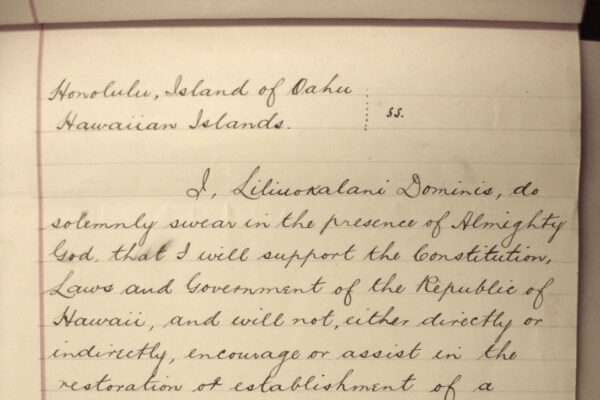 Honolulu, Island of Oahu
Hawaiian Islands.
ss.
I, Liliuokalani Dominis, do
solemnly swear in the presence of Almighty
God, that I will support the Constitution,
Laws and Government of the Republic of
Hawaii, and will not, either directly or
indirectly, encourage or assist in the
restoration or establishment of a